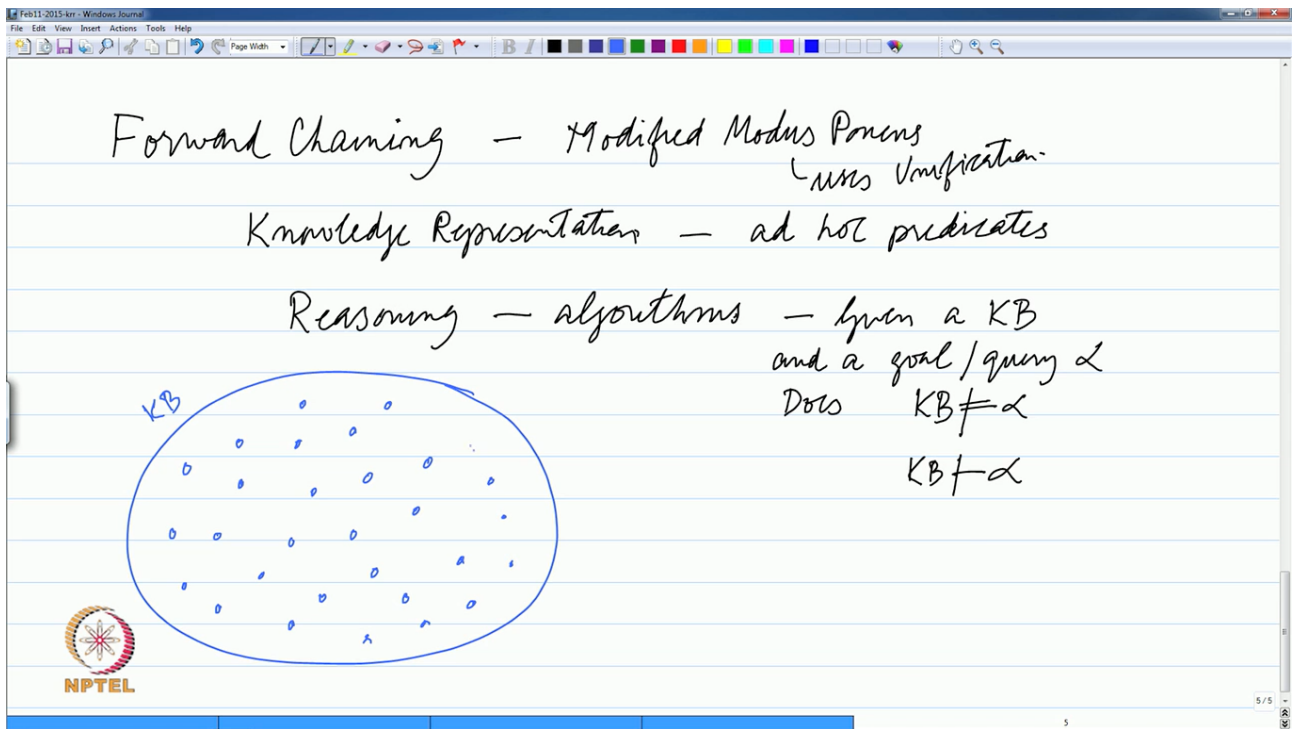 Feb11-2015-krr - Windows Journal
File Edit View Insert Actions Tools Help
Page Width
B I
Forward Chaining — Modified Modus Ponens
uses Unification.
Knowledge Representation — ad hoc predicates
Reasoning — algorithms — Given a KB
and a goal / query α
Does KB ⊨ α
KB ⊢ α
KB
NPTEL
5/5
5